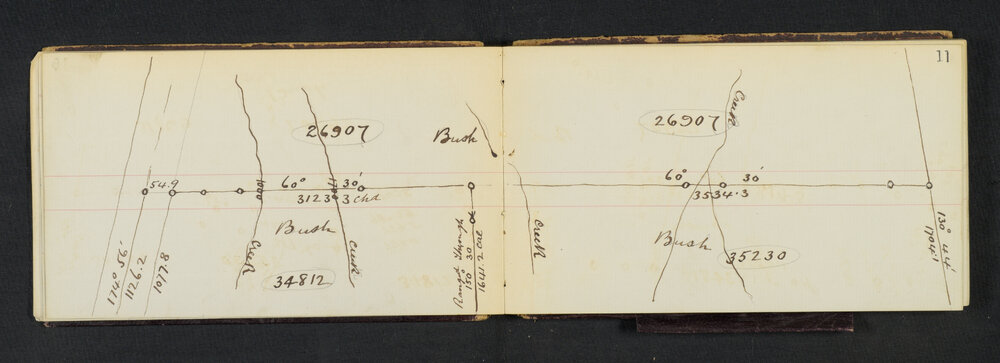 11
26907
Bush
54.9
60° 30'
1000
1700
3123.3 chd
Bush
Creek
Creek
34812
174° 56'
1126.2
1077.8
150° 30
1641.2 cal
Creek
26907
Creek
60° 30'
3534.3
Bush
35230
130° 44'
1704.1